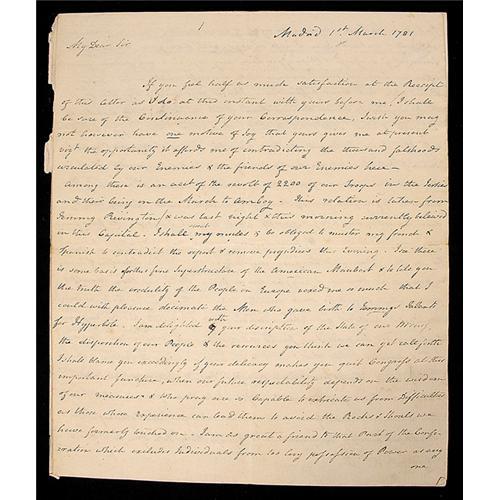 1
Madrid 1st March 1781
My Dear Sir
If you feel half as much satisfaction at the Receipt
of this Letter as I do at this instant with yours before me, I shall
be sure of the Continuance of your Correspondence, I wish you may
not however have one motive of Joy that yours gives me at present
vizt the opportunity it affords me of contradicting the thousand falshoods
circulated by our Enemies & the friends of our Enemies here —
Among these is an acct of the revolt of 2200 of our Troops in the Jersies
and their being on the March to Amboy. This relation is taken from
Jemmy Rivington & was last night & this morning currently believed
in this Capital. I shall mount my mules & be obliged to muster my french &
Spanish to contradict the report & remove prejudices this Evening. I see there
is some basis for the fine Superstructure of the American and to tell you
the truth the credulity of the People in Europe vexed me so much that I
could with pleasure decimate the Men who gave birth to Jemmy's Talent
for Hyperbole. I am delighted with your description of the State of our
the disposition of our People & the resources you think we can yet call forth
I shall blame you exceedingly if your delicacy makes you quit Congress at this
important juncture, when our future respectability depends on the wisdom
of our measures & who pray sir is Capable to extricate us from Difficulties
as those whose experience can lead them to avoid the Rocks & Shoals we
have formerly touched on. I am as great a friend to that Part of the Confe-
ration which excludes Individuals from too long possession of Power as any
one